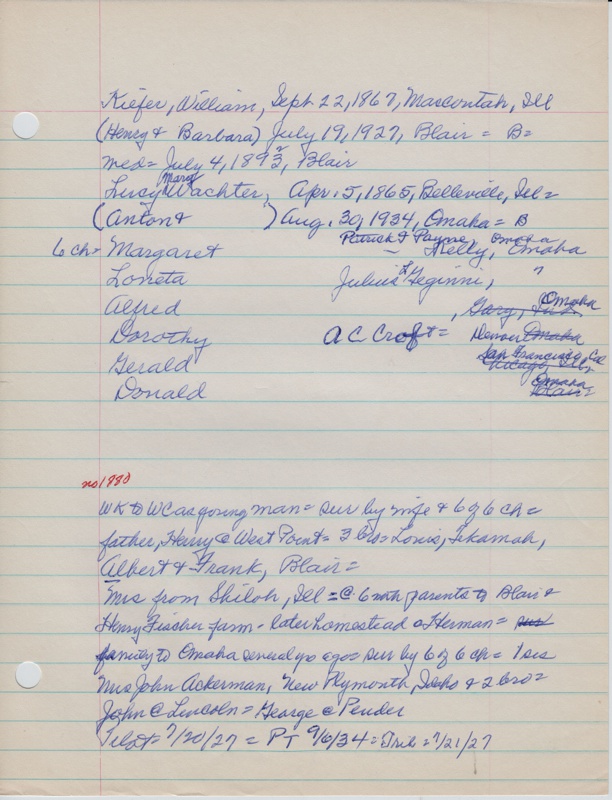 Kiefer, William, Sept 22, 1867, Mascoutah, Ill
(Henry & Barbara) July 19, 1927, Blair = B=
med = July 4, 1893, Blair
Mary
Luvay Wachter, Apr. 5, 1865, Belleville, Ill =
(Anton & ) Aug. 30, 1934, Omaha = B
Patrick I Payne, Omaha
6 ch = Margaret — Kelly, Omaha
Loneta Julius F Feginni, "
Alfred , Gary, Ind. Omaha
Dorothy A C Croft = Denver Omaha
Gerald San Francisco, Cal Chicago, Ill,
Donald Omaha Blair =
no 1880
WK to WC as young man = sur by wife & 6 of 6 ch =
father, Henry @ West Point = 3 bro = Louis, Tekamah,
Albert & Frank, Blair =
Mrs from Shiloh, Ill = @ 6 with parents to Blair &
Henry Fischer farm - later homestead @ Herman =
family to Omaha several yo ago = sur by 6 of 6 ch = 1 sis
Mrs John Ackerman, New Plymouth, Idaho & 2 bro =
John @ Lincoln = George @ Pender
Pilot = 7/20/27 = PT 9/6/34 = Trib = 7/21/27